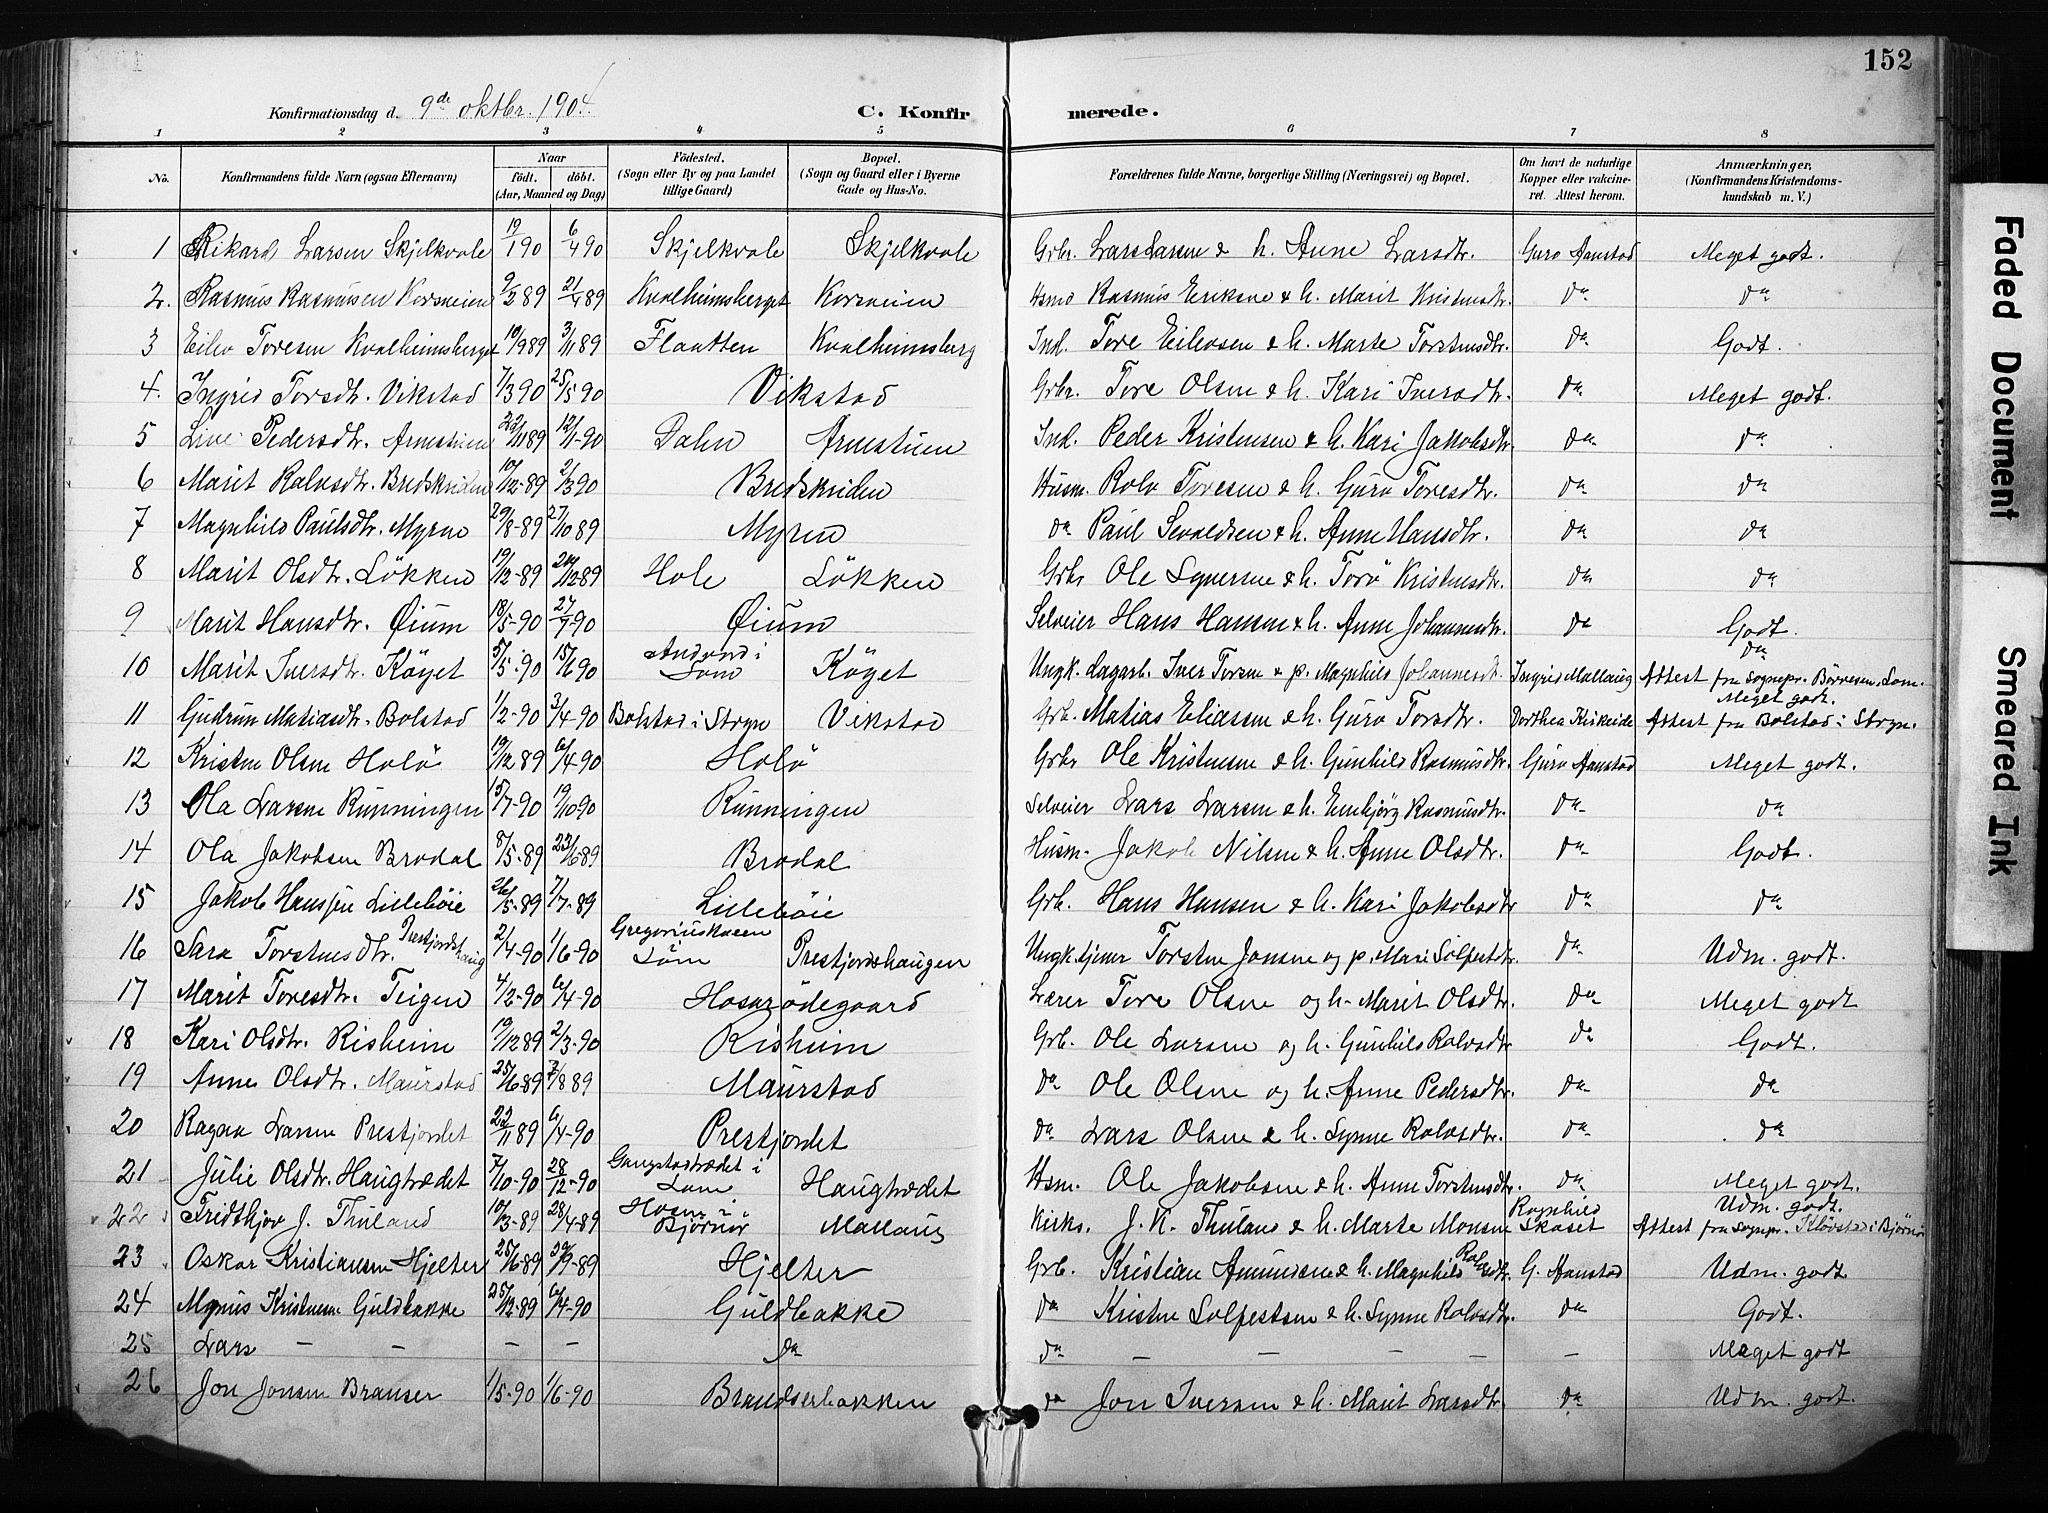 152
Konfirmationsdag d. 9de oktbr. 1904.
C. Konfirmerede.
1 2 3 4 5 6 7 8
No.
Konfirmandens fulde Navn (ogsaa Efternavn)
Naar født. døbt. (Aar, Maaned og Dag)
Fødested. (Sogn eller By og paa Landet tillige Gaard)
Bopæl. (Sogn og Gaard eller i Byerne Gade og Hus-No.
Forældrenes fulde Navne, borgerlige Stilling (Næringsvei) og Bopæl.
Om havt de naturlige Kopper eller vakcineret. Attest herom.
Anmærkninger, (Konfirmandens Kristendomskundskab m. V.)
1 Rikard Larsen Skjelkvale 19/1 90 6/4 90 Skjelkvale Skjelkvale Grbr. Lars Larsen & h. Anne Larsdtr. Guro Aanstad Meget godt.
2. Rasmus Rasmusen Korsveien 9/2 89 21/4 89 Kvalheimsberget Korsveien Hsmd Rasmus Eriksen & h. Marit Kristensdtr. do do
3 Eilev Toresen Kvalheimsberget 10/9 89 3/11 89 Flaatten Kvalheimsberg Ind. Tore Eilevsen & h. Marte Torstensdtr. do Godt.
4. Ingrid Torsdtr. Vikstad 7/3 90 25/5 90 Vikstad Grbr. Tore Olsen & h. Kari Iversdtr. do Meget godt.
5 Line Pedersdtr. Arnestuen 22/11 89 12/1-90 Dahn Arnestuen Ind. Peder Kristensen & h. Kari Jakobsdtr do do
6 Marit Rolvsdtr. Bredskriden 10/12-89 2/3 90 Bredskriden Husm. Rolv Toresen & h. Guro Toresdtr. do do
7 Magnhild Paulsdtr. Myren 29/8-89 27/10 89 Myren do Paul Sevaldsen & h. Anne Hansdtr. do do
8 Marit Olsdtr. Løkken 19/12-89 26/12-89 Hole Løkken Grbr Ole Synersen & h. Torø Kristensdtr. do do
9 Marit Hansdtr. Øium 18/5-90 27/7-90 Øium Selveier Hans Hansen & h. Anne Johannesdtr. do Godt.
10 Marit Iversdtr. Køyet 5/5-90 15/6 90 Andvord i Lom Køyet Ungk. Dagarb. Iver Torsen & p. Magnhild Johannesdt. Ingrid Mallaug do Attest fra Sognepr. Børresen, Lom.
11 Gudrun Matiasdtr. Bolstad 1/2-90 3/4-90 Bolstad i Stryn Vikstad Grb. Matias Eliassen & h. Guro Torsdtr. Dorthea Kirkeide Meget godt. Attest fra Bolstad i Stryn.
12 Kristen Olsen Holø 19/12 89 6/4-90 Holø Grbr Ole Kristensen & h. Gunhild Rasmusdtr. Guro Aanstad Meget godt.
13 Ola Larsen Rünningen 15/7-90 19/10 90 Rünningen Selveier Lars Larsen & h. Embjørg Rasmusdtr. do do
14 Ola Jakobsen Brodal 8/5-89 23/6 89 Brodal Husm. Jakob Nilsen & h. Anne Olsdtr. do Godt.
15 Jakob Hanssen Lillebøie 26/5-89 7/7-89 Lillebøie Grb. Hans Hansen & h. Kari Jakobsdtr do do
16 Sara Torstensdtr. Prestjordshaug 2/4-90 1/6-90 Gregoriuskaaen i Lom Prestjordshaugen Ungk. tjener Torsten Jonsen og p. Mari Solfestdtr. do Udm. godt.
17 Marit Toresdtr. Teigen 4/2-90 6/4-90 Hosarødegaard Lærer Tore Olsen og h. Marit Olsdtr. do Meget godt
18 Kari Olsdtr. Risheim 19/12 89 2/3-90 Risheim Grb. Ole Larsen og h. Gunhild Rolvsdtr do Godt.
19 Anne Olsdtr. Maurstad 25/6 89 7/8 89 Maurstad do Ole Olsen og h. Anne Pedersdtr. do do
20 Ragna Larsen Prestjordet 22/11 89 6/4-90 Prestjordet do Lars Olsen & h. Synne Rolvsdtr. do do
21 Julie Olsdtr. Haugtrædet 7/10-90 28/12-90 Gaugstadtrædet i Lom Haugtrædet Hsm. Ole Jakobsen & h. Anne Torstensdtr. do Meget godt.
22 Fridthjov J. Thuland 10/3-89 28/4-89 Hosen i Bjørnør Mallaug Kirks. J. K. Thuland & h. Marte Monsen Ragnhild Skaset Udm. godt. Attest fra Sognepr. Kløvstad i Bjørnør
23 Oskar Kristiansen Hjelter 25/6-89 29/9-89 Hjelter Grb. Kristian Amundsen & h. Magnhild Rolvsdtr. G. Aanstad Udm. godt
24 Magnus Kristensen Guldbakke 25/12-89 6/4-90 Guldbakke do Kristen Solfestsen & h. Synne Rolvsdtr. do Godt.
25 Lars — — — — do do — — — — Meget godt
26 Jon Jonsen Branser 1/5-90 1/6-90 Brandserbakken do Jon Iversen & h. Marit Larsdtr. do Udm. godt.
Faded Document
Smeared Ink